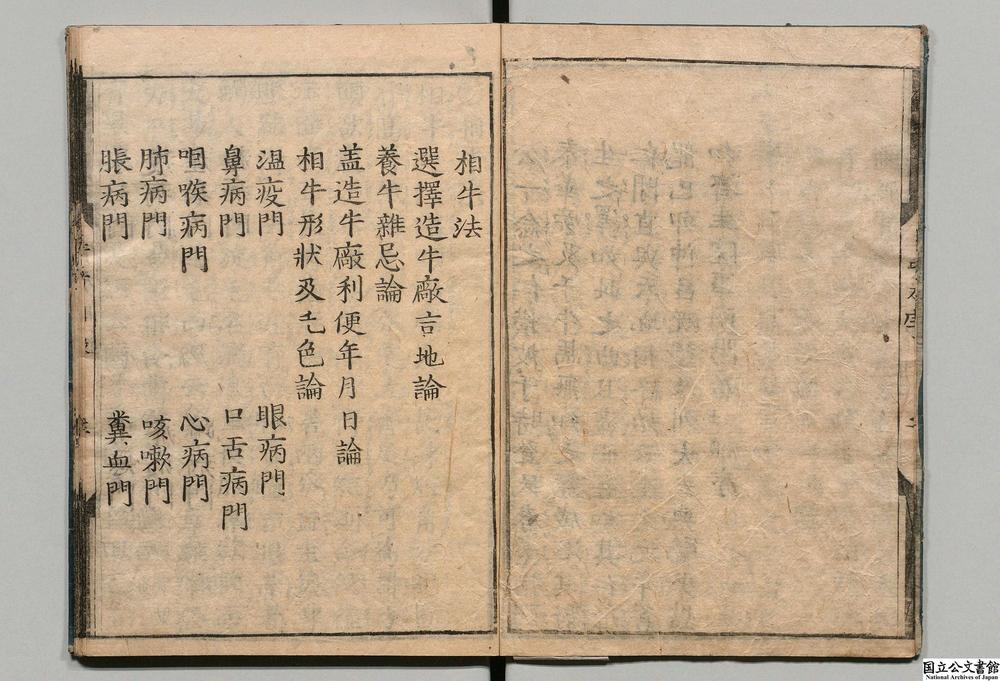 相牛法
選擇造牛廠吉地論
養牛雜忌論
盖造牛廠利便年月日論
相牛形狀及毛色論
温疫門 眼病門
鼻病門 口舌病門
咽喉病門 心病門
肺病門 咳嗽門
脹病門 糞血門
国立公文書館
National Archives of Japan